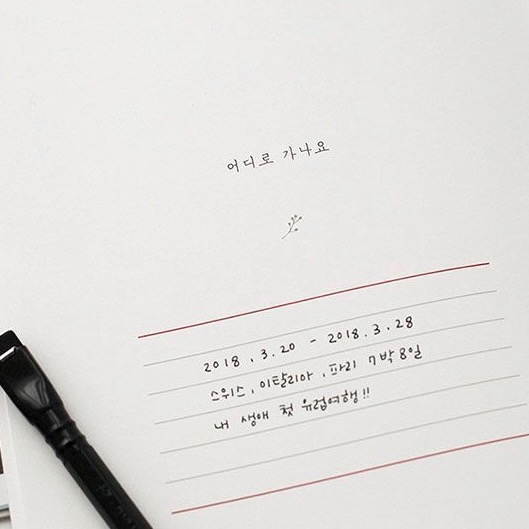 어디로 가나요
2018 . 3. 20 - 2018. 3. 28
스위스, 이탈리아, 파리 7박 8일
내 생애 첫 유럽여행!!